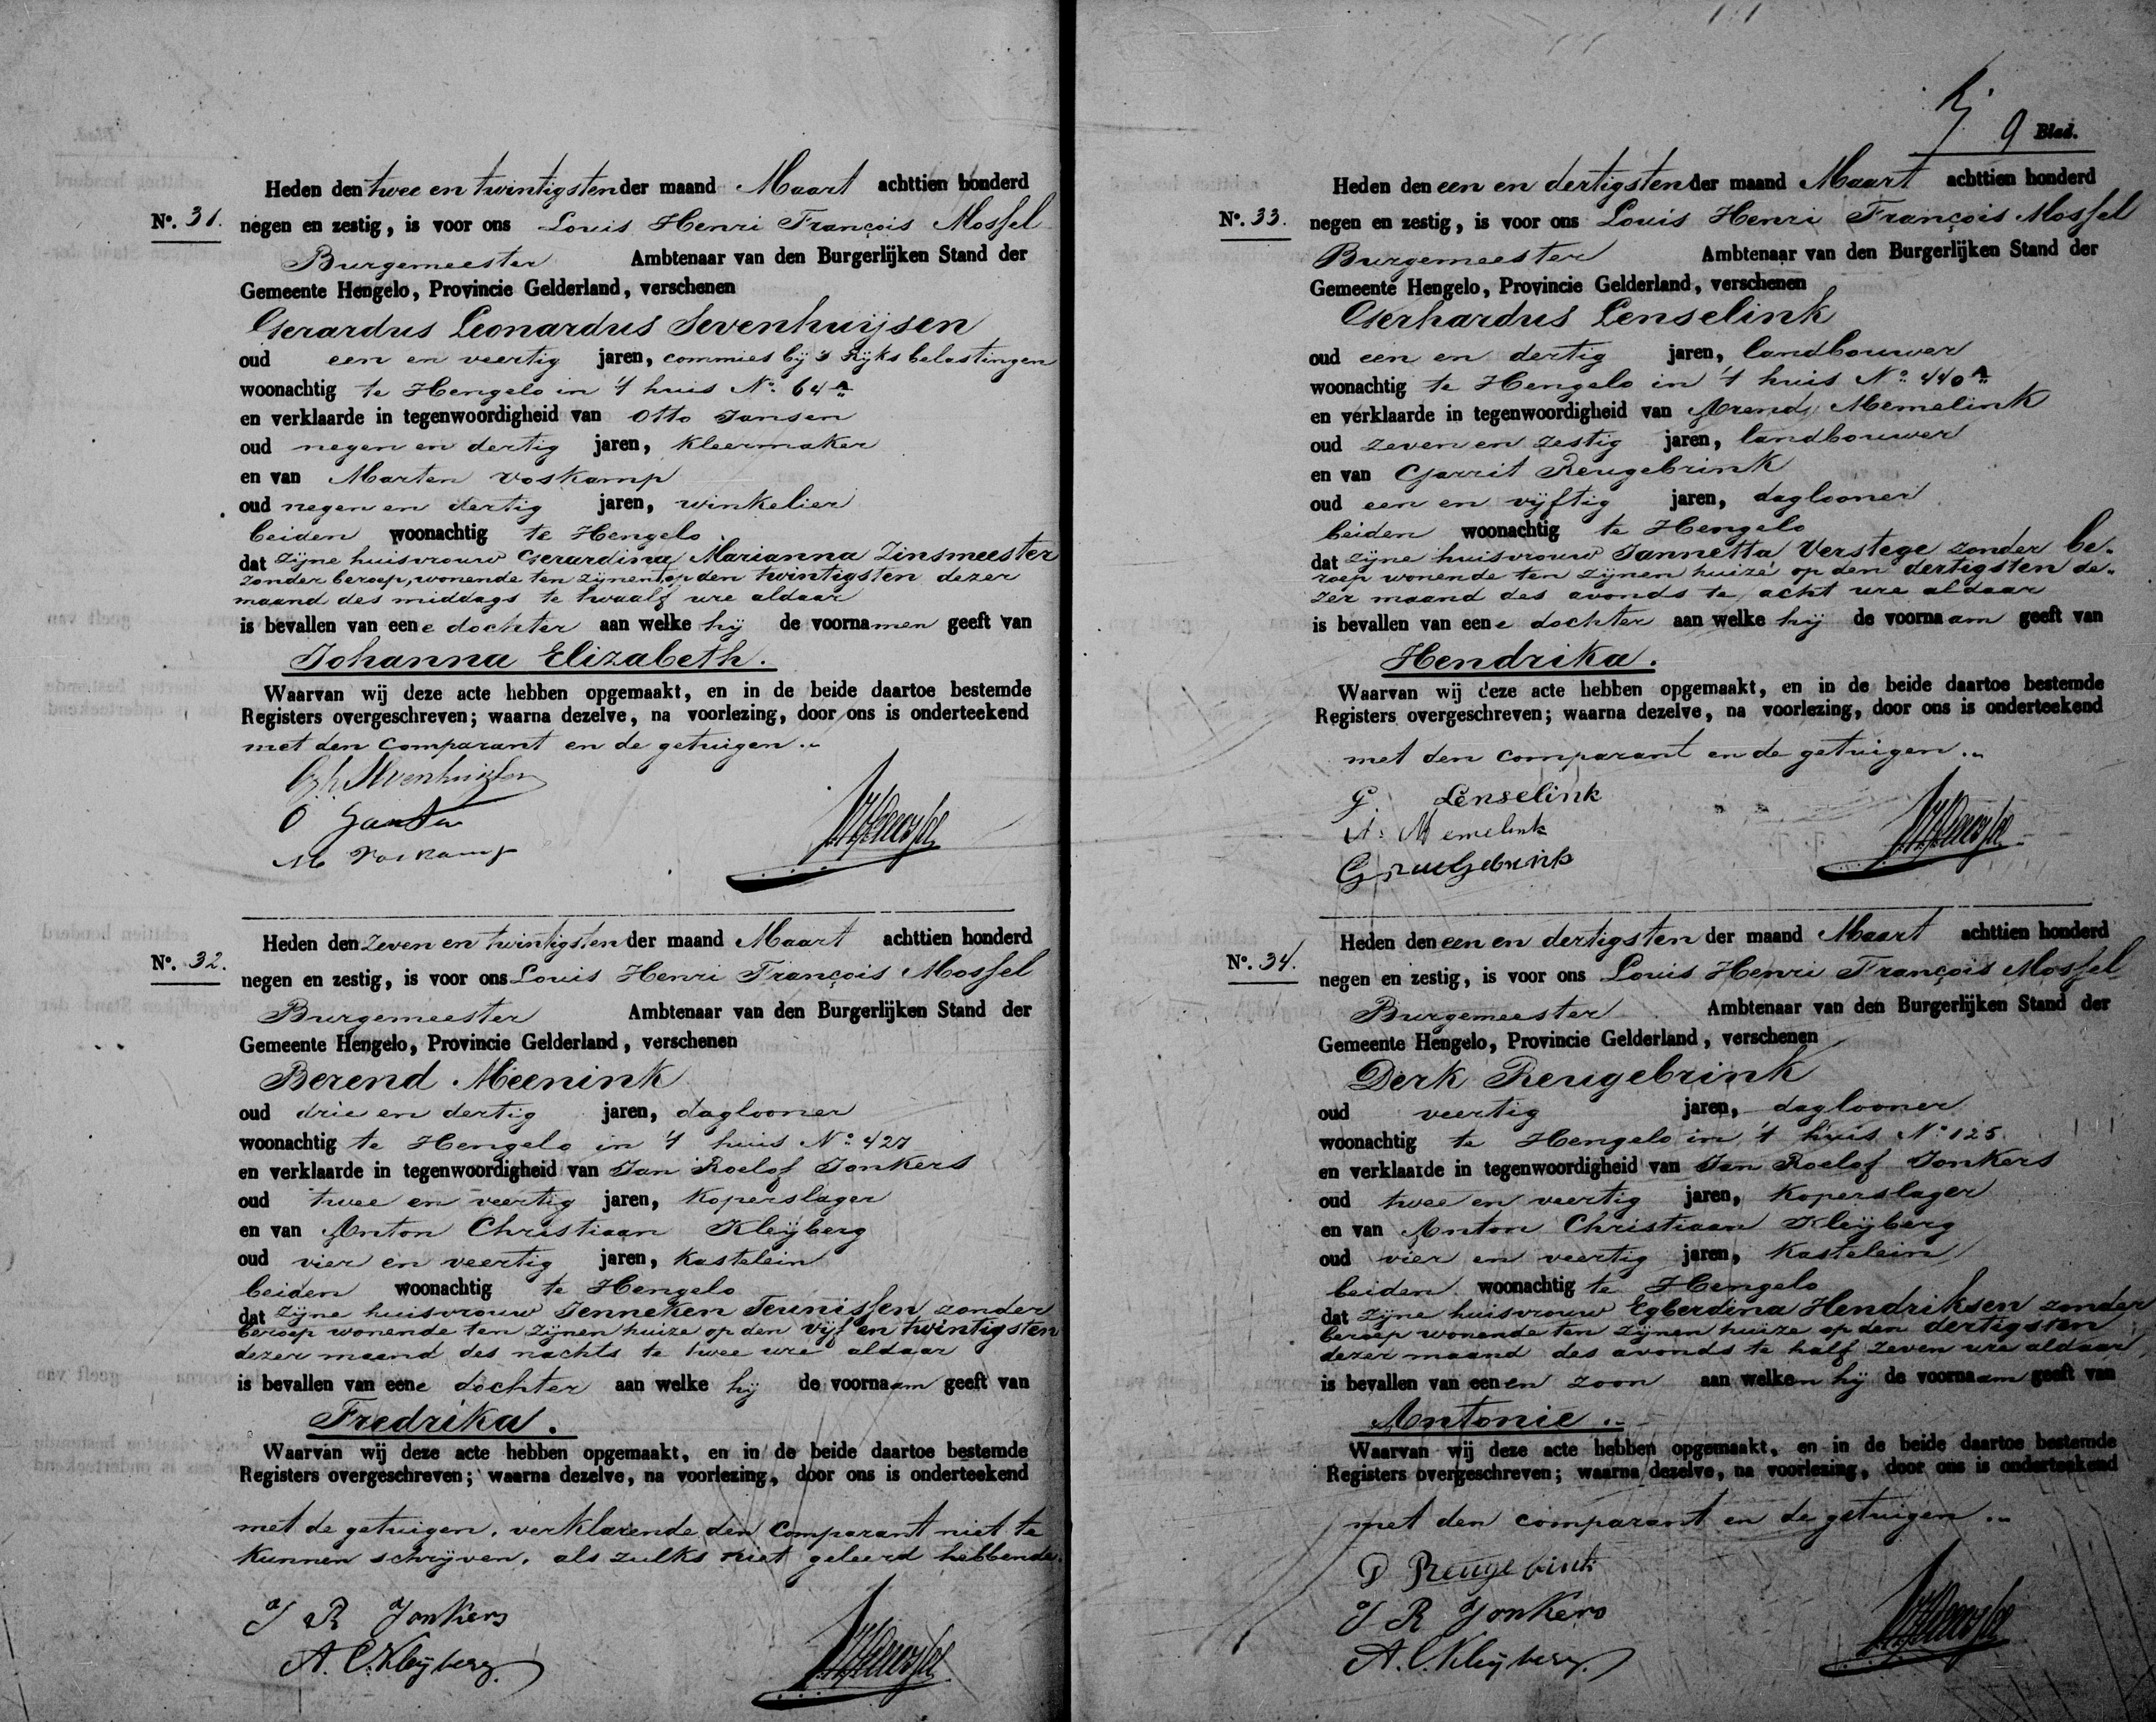 Heden den twee en twintigsten der maand Maart achttien honderd
No. 31. negen en zestig, is voor ons Louis Henri François Mossel
Burgemeester Ambtenaar van den Burgerlijken Stand der
Gemeente Hengelo, Provincie Gelderland, verschenen
Gerardus Leonardus Sevenhuijsen
oud een en veertig jaren, commies bij 's Rijks belastingen
woonachtig te Hengelo in 't huis No. 64A
en verklaarde in tegenwoordigheid van Otto Jansen
oud negen en dertig jaren, kleermaker
en van Marten Voskamp
oud negen en dertig jaren, winkelier
beiden woonachtig te Hengelo
dat zijne huisvrouw Gerardina Marianna Zinsmeester
zonder beroep, wonende ten zijnent op den twintigsten dezer
maand des middags te twaalf ure aldaar
is bevallen van eene dochter aan welke hij de voornamen geeft van
Johanna Elizabeth.
Waarvan wij deze acte hebben opgemaakt, en in de beide daartoe bestemde
Registers overgeschreven; waarna dezelve, na voorlezing, door ons is onderteekend
met den comparant en de getuigen.
G. L. Sevenhuijsen
O Jansen
M Voskamp
Heden den zeven en twintigsten der maand Maart achttien honderd
No. 32. negen en zestig, is voor ons Louis Henri François Mossel
Burgemeester Ambtenaar van den Burgerlijken Stand der
Gemeente Hengelo, Provincie Gelderland, verschenen
Berend Meenink
oud drie en dertig jaren, daglooner
woonachtig te Hengelo in 't huis No. 427
en verklaarde in tegenwoordigheid van Jan Roelof Jonkers
oud twee en veertig jaren, koperslager
en van Anton Christiaan Kleijberg
oud vier en veertig jaren, kastelein
beiden woonachtig te Hengelo
dat zijne huisvrouw Jenneken Teunissen zonder
beroep wonende ten zijnen huize op den vijf en twintigsten
dezer maand des nachts te twee ure aldaar
is bevallen van eene dochter aan welke hij de voornaam geeft van
Fredrika.
Waarvan wij deze acte hebben opgemaakt, en in de beide daartoe bestemde
Registers overgeschreven; waarna dezelve, na voorlezing, door ons is onderteekend
met de getuigen, verklarende den comparant niet te
kunnen schrijven, als zulks niet geleerd hebbende.
J R Jonkers
A. C. Kleijberg.
9 Blad.
Heden den een en dertigsten der maand Maart achttien honderd
No. 33. negen en zestig, is voor ons Louis Henri François Mossel
Burgemeester Ambtenaar van den Burgerlijken Stand der
Gemeente Hengelo, Provincie Gelderland, verschenen
Gerhardus Lenselink
oud een en dertig jaren, landbouwer
woonachtig te Hengelo in 't huis No. 440A
en verklaarde in tegenwoordigheid van Arend Memelink
oud zeven en zestig jaren, landbouwer
en van Gerrit Reugebrink
oud een en vijftig jaren, daglooner
beiden woonachtig te Hengelo
dat zijne huisvrouw Jannetta Verstege zonder be-
roep wonende ten zijnen huize op den dertigsten de-
zer maand des avonds te acht ure aldaar
is bevallen van eene dochter aan welke hij de voornaam geeft van
Hendrika.
Waarvan wij deze acte hebben opgemaakt, en in de beide daartoe bestemde
Registers overgeschreven; waarna dezelve, na voorlezing, door ons is onderteekend
met den comparant en de getuigen.
G. Lenselink
A. Memelink
G reugebrink
Heden den een en dertigsten der maand Maart achttien honderd
No. 34. negen en zestig, is voor ons Louis Henri François Mossel
Burgemeester Ambtenaar van den Burgerlijken Stand der
Gemeente Hengelo, Provincie Gelderland, verschenen
Derk Reugebrink
oud veertig jaren, daglooner
woonachtig te Hengelo in 't huis No 125
en verklaarde in tegenwoordigheid van Jan Roelof Jonkers
oud twee en veertig jaren, koperslager
en van Anton Christiaan Kleijberg
oud vier en veertig jaren, kastelein
beiden woonachtig te Hengelo
dat zijne huisvrouw Egberdina Hendriksen zonder
beroep wonende ten zijnen huize op den dertigsten
dezer maand des avonds te half zeven ure aldaar
is bevallen van eenen zoon aan welken hij de voornaam geeft van
Antonie.
Waarvan wij deze acte hebben opgemaakt, en in de beide daartoe bestemde
Registers overgeschreven; waarna dezelve, na voorlezing, door ons is onderteekend
met den comparant en de getuigen.
D Reugebrink
J R Jonkers
A. C. Kleijberg.